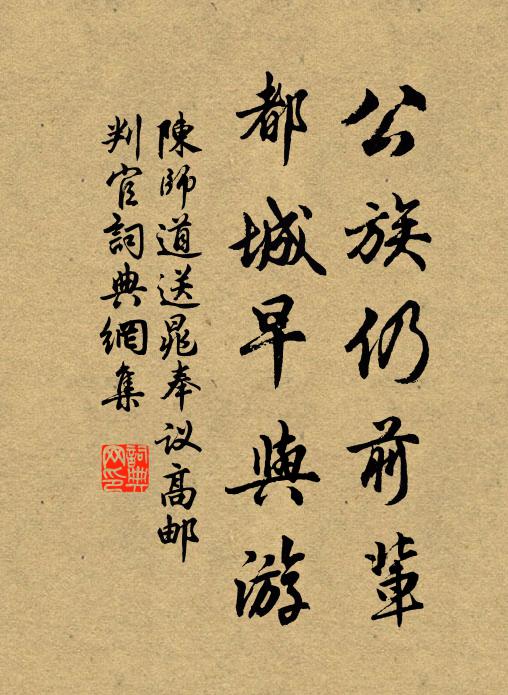 公族仍前輩
都城早與游
陳師道送晁奉议高邮
判官詞典網集
詞典网印